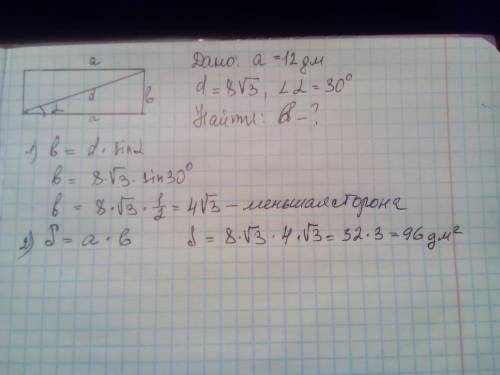 a
d
в
∠
a
Дано: a = 12 дм
d = 8√3, ∠α = 30°
Найти: в - ?
1) в = d · sinα
в = 8 · √3 · sin30°
в = 8 · √3 · 1/2 = 4√3 – меньшая сторона
2) S = a · в S = 8 · √3 · 4 · √3 = 32 · 3 = 96 дм²